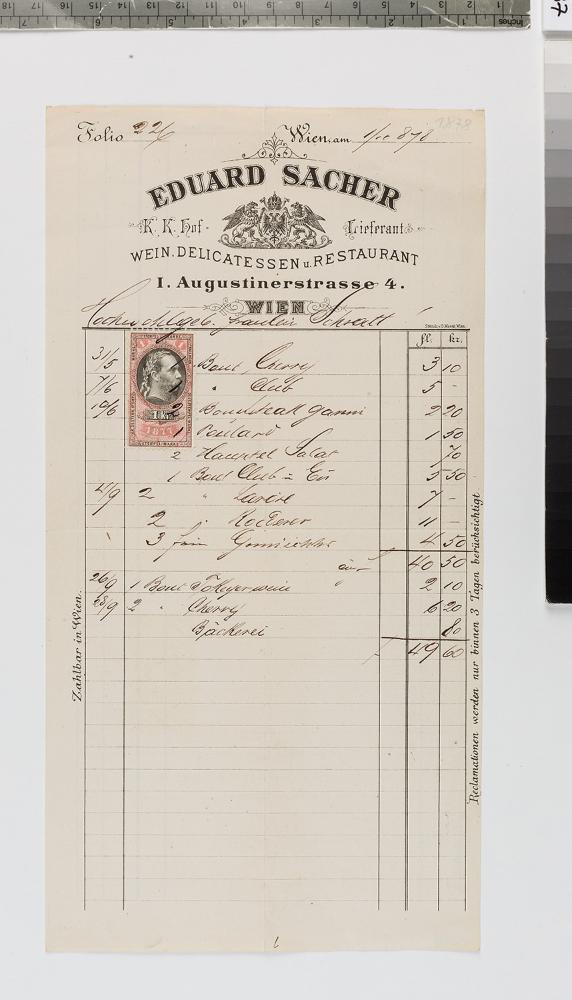 Folio 226
Wien, am 1/10 878
1878
EDUARD SACHER
K. K. Hof- Lieferant
WEIN, DELICATESSEN u. RESTAURANT
I. Augustinerstrasse 4.
WIEN
Hochwohlgeb. Fräulein Schratt
fl. kr.
31/5 1 Bout Cherry 3 10
7/6 1 " Club 5 -
10/6 2 garni 2 20
1 Poulard 1 50
2 Hauptel Salat 70
1 Bout Club 5 50
21/9 2 " 7 -
2 " 11 -
3 4 50
40 50
26/9 1 Bout Tokeyerwein 2 10
28/9 2 " Cherry 6 20
Bäckerei 80
49 60
1877
Zahlbar in Wien.
Reclamationen werden nur binnen 3 Tagen berücksichtigt